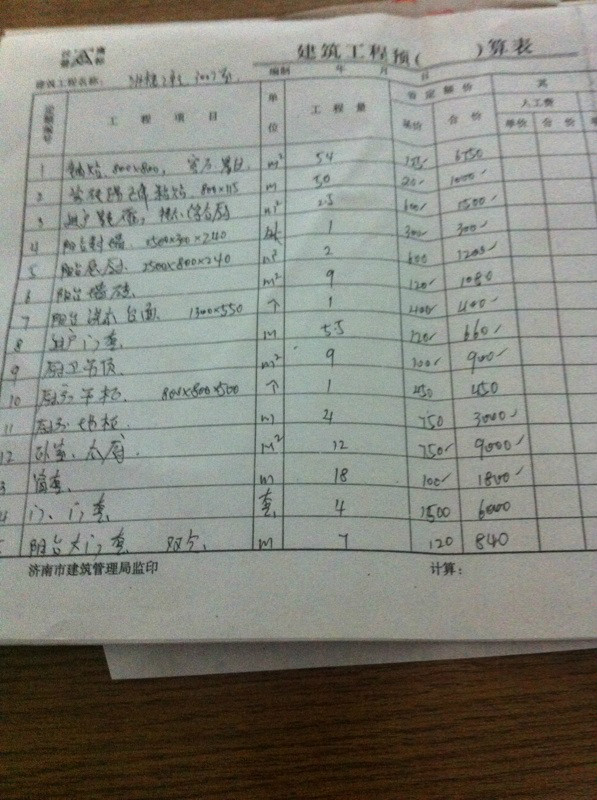 建筑工程预( )算表
建筑工程名称:
编制 年 月 日
定额编号 工程项目 单位 工程量 合定额价 其
单价 合价 人工费
单价 合价 单
1 800×800, m² 54 6750
2 800×115 m 50 20 1000
3 m² 2.5 600 1500
4 阳台 2500×300×240 1 300 300
5 阳台 2500×800×240 m² 2 600 1200
6 阳台墙砖 m² 9 120 1080
7 阳台洗衣台面 1300×550 个 1 400 400
8 进户门套 m 5.5 120 660
9 厨卫吊顶 m² 9 100 900
10 厨房吊柜 800×800×500 个 1 450 450
11 厨房地柜 m 4 750 3000
12 卧室、衣厨 m² 12 750 9000
3 窗套 m 18 100 1800
4 门、门套 套 4 1500 6000
5 阳台大门套 双公 m 7 120 840
济南市建筑管理局监印 计算: